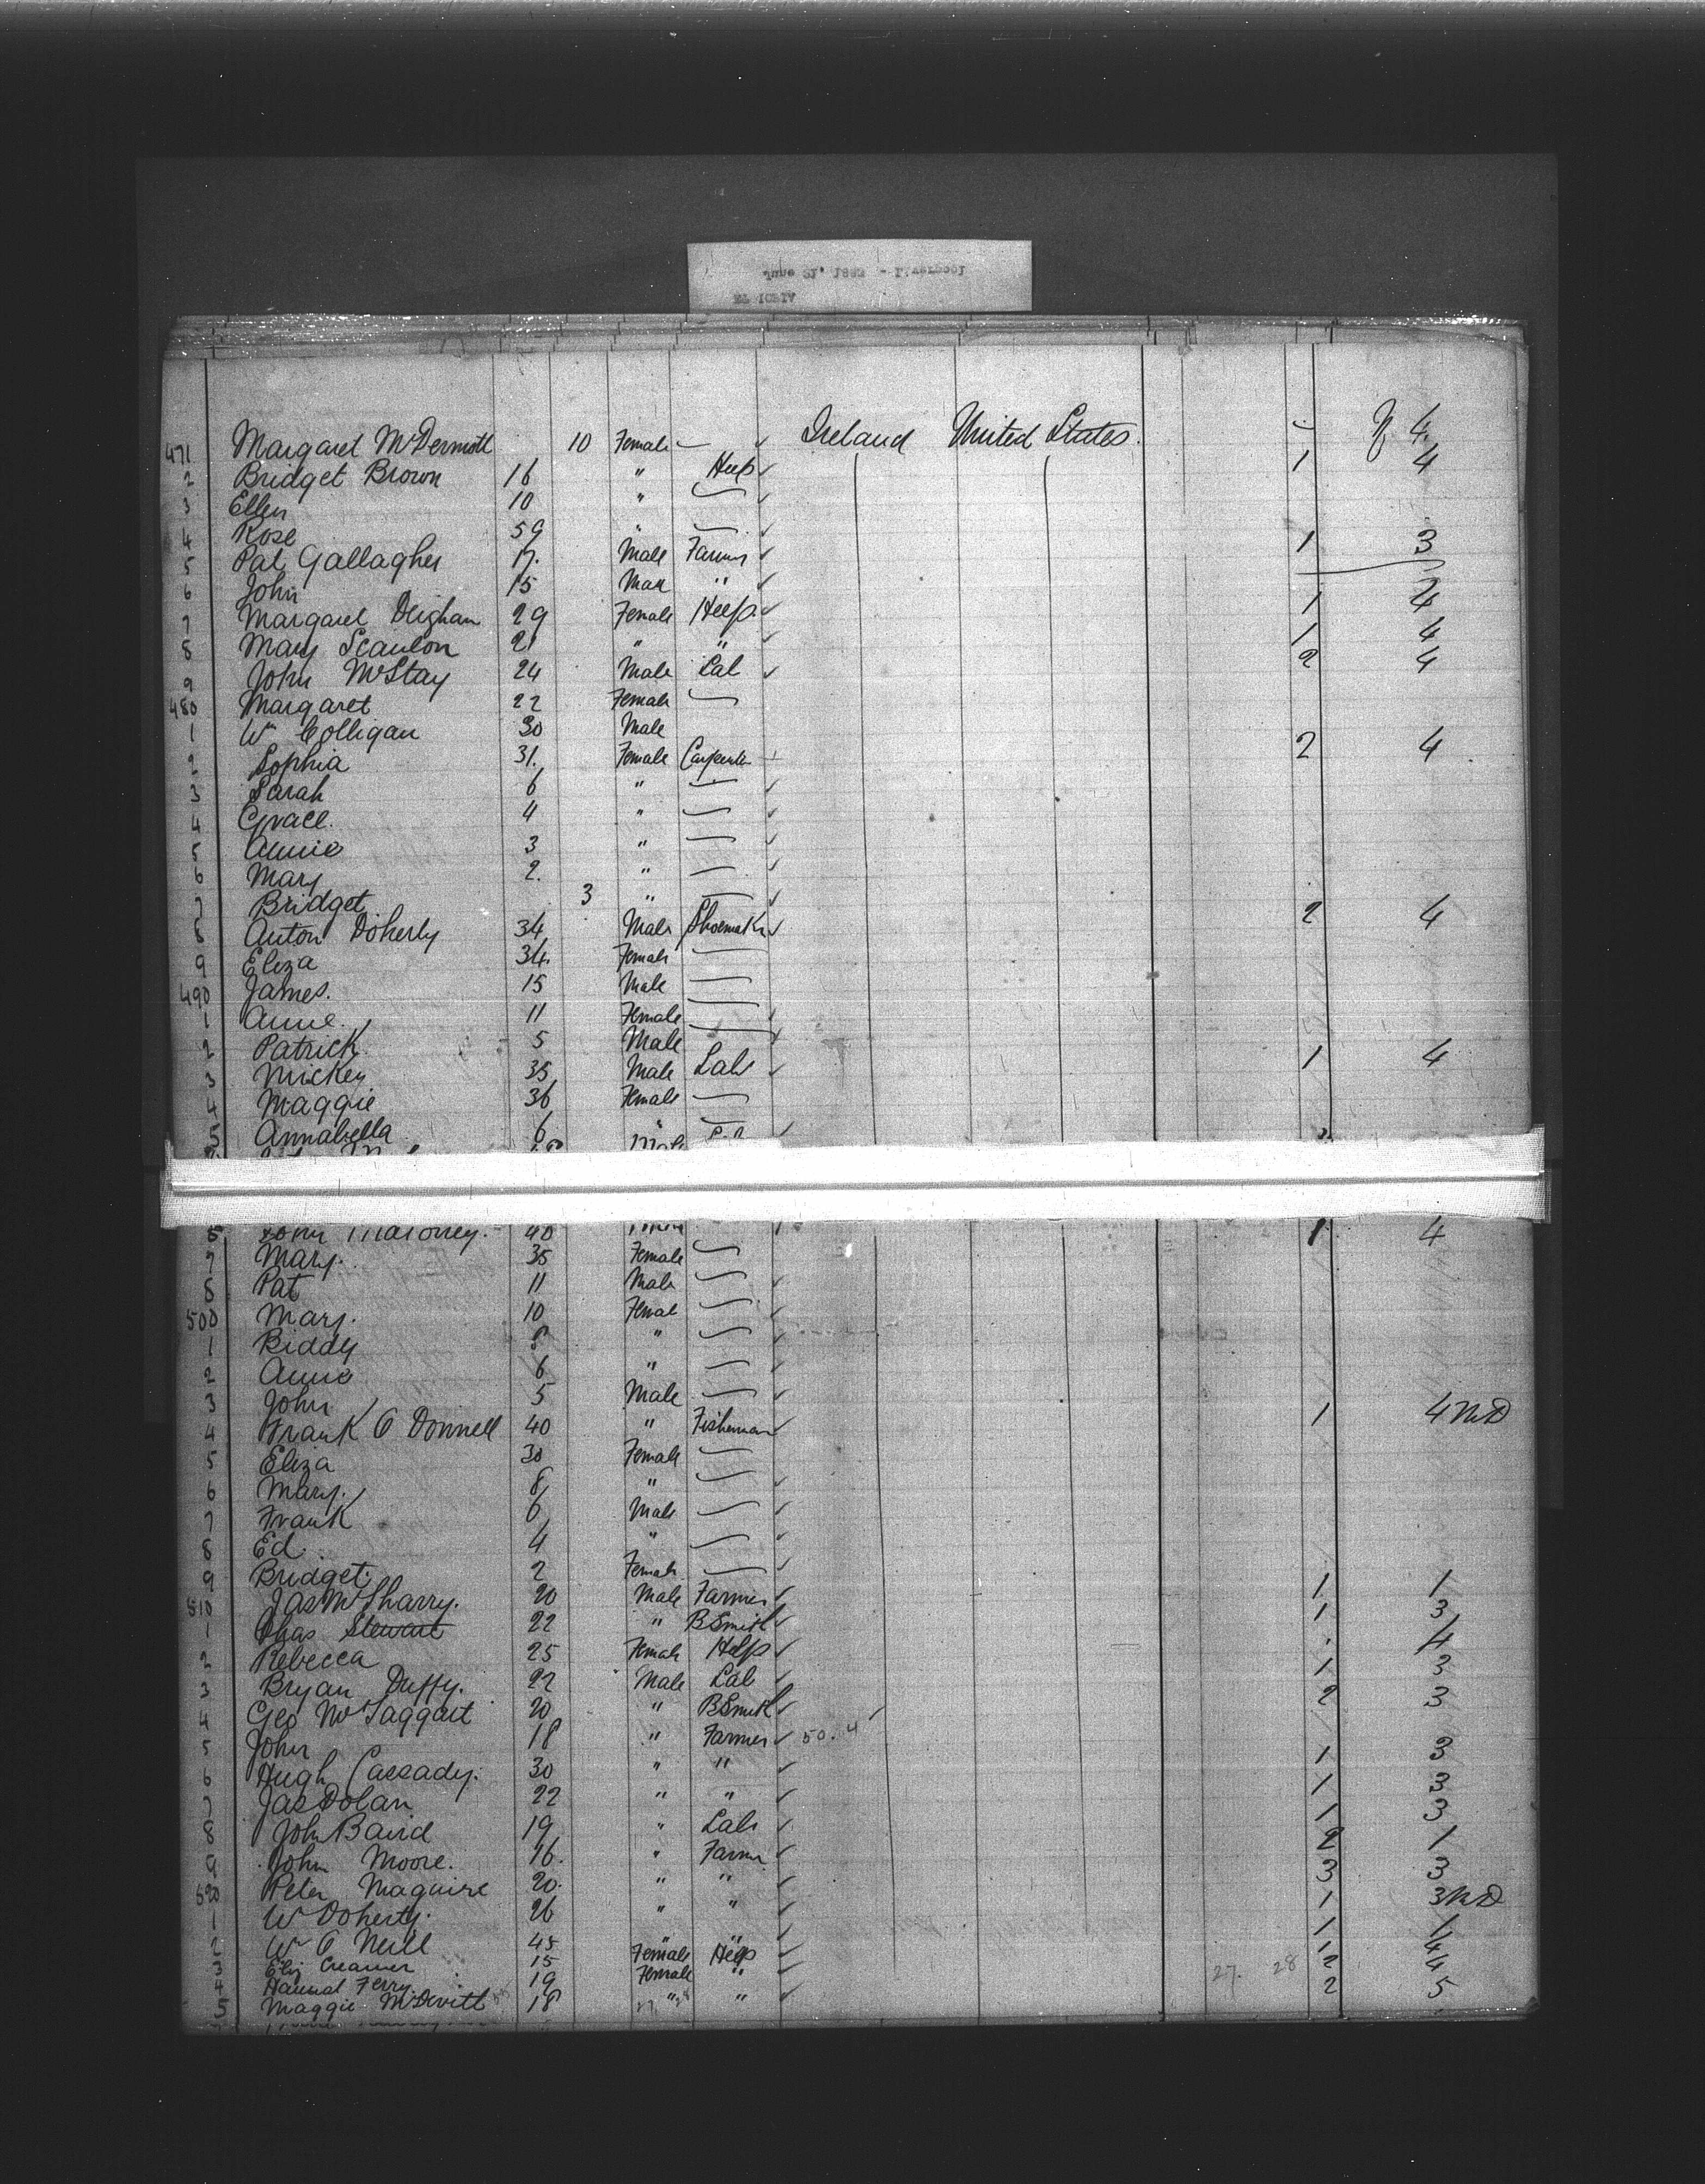 June 21, 1882 - Liverpool
471 Margaret McDermott 10 Female — Ireland United States. — 4
2 Bridget Brown 16 " Help 1 4
3 Ellen 10 " —
4 Rose 59 " —
5 Pat Gallagher 17. Male Farmer 1 3
6 John 15 Male "
7 Margaret Deighan 29 Female Help 1 4
8 Mary Scanlon 21 " " 1 4
9 John McStay 24 Male Lab 2 4
480 Margaret 22 Female —
1 Wm Colligan 30 Male
2 Sophia 31. Female Carpenter 2 4
3 Sarah 6 " —
4 Grace. 4 " —
5 Annie 3 " —
6 Mary 2. " —
7 Bridget 3 " —
8 Anton Doherty 34 Male Shoemaker 2 4
9 Eliza 34. Female —
490 James. 15 Male —
1 Anne. 11 Female —
2 Patrick 5 Male —
3 Mickey 35 Male Labr 1 4
4 Maggie 36 Female —
5 Annabella 6 " —
John Maloney. 40 1 4
7 Mary. 35 Female —
8 Pat 11 Male —
500 Mary. 10 Female —
1 Biddy 8 " —
2 Annie 6 " —
3 John 5 Male —
4 Frank O Donnell 40 " Fisherman 1 4 ND
5 Eliza 30 Female —
6 Mary. 8 " —
7 Frank 6 Male —
8 Ed. 4 " —
9 Bridget. 2 Female —
510 Jas McSharry. 20 Male Farmer 1 1
1 Chas Stewart 22 " BSmith 1 3
2 Rebecca 25 Female Help 4
3 Bryan Duffy. 22 Male Lab 1 3
4 Geo McTaggart 20 " BSmith 2 3
5 John 18 " Farmer 50. 4
6 Hugh Cassady. 30 " " 1 3
7 Jas Dolan 22 " " 1 3
8 John Baird 19 " Labr 1 3
9 John Moore. 16. " Farmer 2 1
520 Peter Maguire 20. " " 3 3
1 W Doherty. 26 " " 1 3 ND
2 Wm O Neill 45 " " 1 1
3 Eliz Creamer 15 Female Help 1 4
4 Hannah Ferry 19 Female " 27. 28 2 4
5 Maggie McDevitt 18 " " 2 5